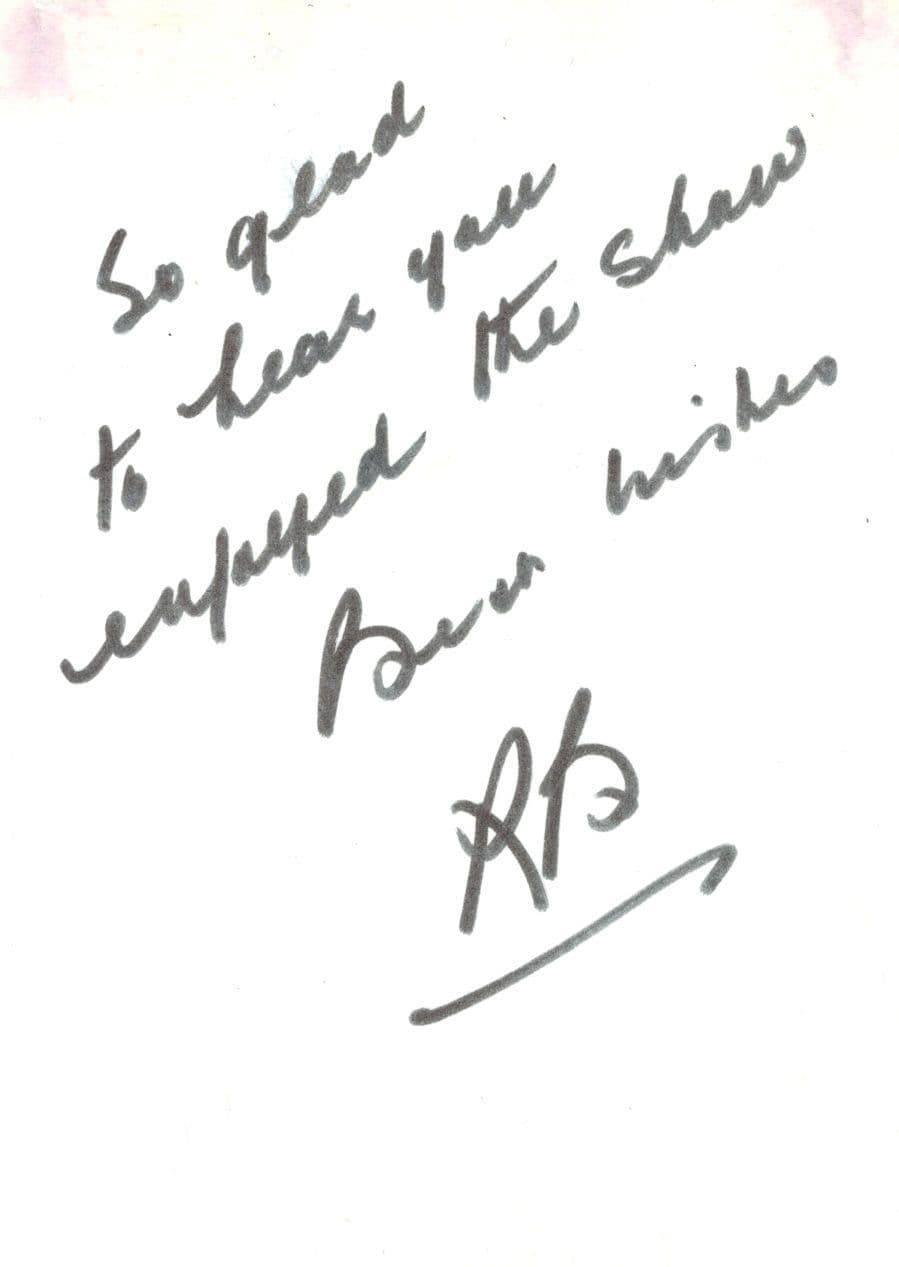 So glad
to hear you
enjoyed the show
Best wishes
RB